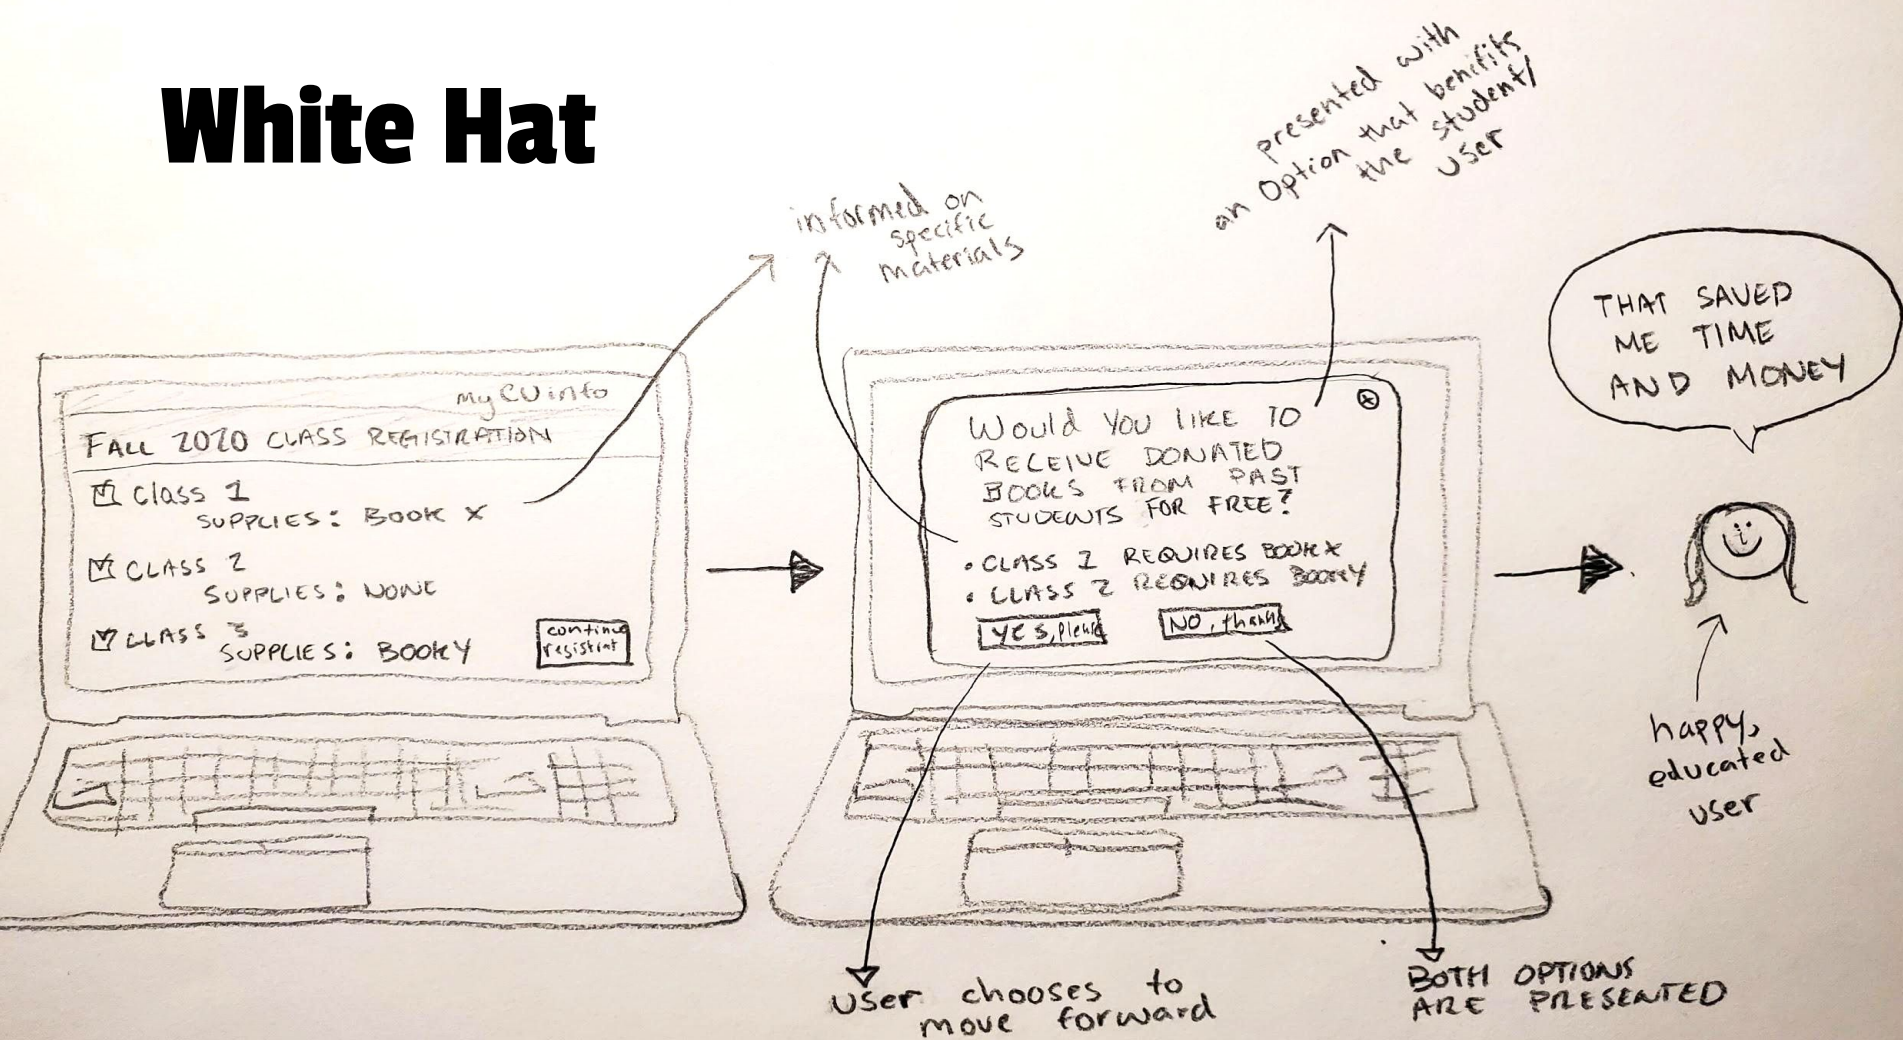 White Hat
informed on
specific
materials
presented with
an Option that benifits
the student/
user
THAT SAVED
ME TIME
AND MONEY
myCUinfo
FALL 2020 CLASS REGISTRATION
Class 1
SUPPLIES: BOOK X
CLASS 2
SUPPLIES: NONE
CLASS 3
SUPPLIES: BOOK Y
continue
Would YOU LIKE TO
RECEIVE DONATED
BOOKS FROM PAST
STUDENTS FOR FREE?
• CLASS 1 REQUIRES BOOK X
• CLASS 2 REQUIRES BOOK Y
yes, please
NO, thanks
happy,
educated
user
user chooses to
move forward
BOTH OPTIONS
ARE PRESENTED